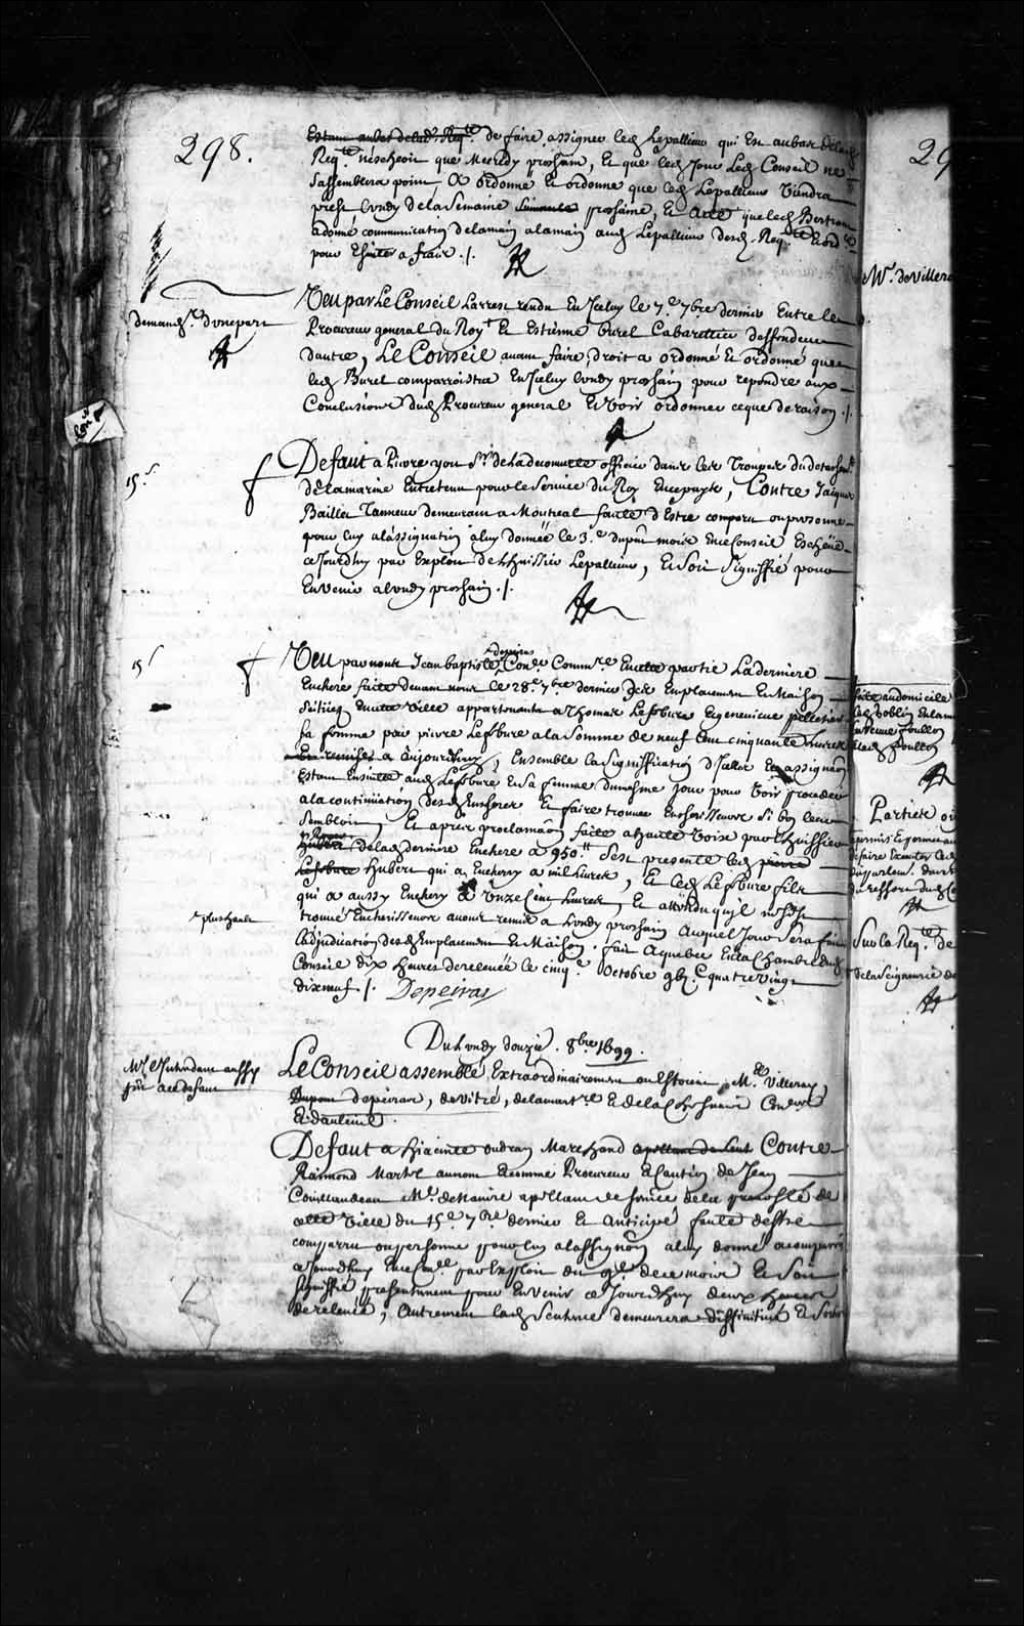 298.
de faire assigner led Lepallieur qui Est au bas de lad
Req.te n'escheoir que Mecredy prochain, Et que led Jour Led Conseil ne
S'assemblera point A ordonné Et ordonne que led Lepallieur Viendra
prest Lundy de la Semaine prochaine, Et Acte que led Bertrand
a donné communication de la main a la main aud Lepallieur desd Req.te Et ord.ce
pour Ensuite a fraix ./.
Veu par Le Conseil L'arrest rendu En Iceluy le 7.e 7bre dernier Entre le
demand.r d'une part
Procureur general du Roy Et Estienne Burel Cabarettier deffendeur
d'autre, Le Conseil avant faire droit a ordonné Et ordonne que
led Burel comparroistra En Iceluy Lundy prochain pour repondre aux
Conclusions dud Procureur general Et Voir ordonner ce que de raison ./.
15 s
Defaut a Pierre you S.r de Ladecouverte officier dans les Troupes du detachem.t
de la marine Entretenu pour le Service du Roy En ce pays, Contre Jacques
Baillet Tanneur demeurant a Montreal faute d'Estre comparu ou personne
pour luy a l'assignation a luy donnée le 3.e du p̃nt mois En ce Conseil Escheüe
ce Jourd'huy par Exploit de L'huissier Lepallieur, Et Soit Signiffié pour
En Venir a Lundy prochain ./.
15 s
Veu par nous Jean baptiste depeiras Con.er Comm.re En cette partie La derniere
Enchere faite devant nous le 28.e 7bre dernier des Emplacement Et Maison
Scitüez En cette Ville appartenants a Thomas Lefebure Et genevieve pelletier
Sa femme par pierre Lefebure a la Somme de neuf Cent cinquante Livres
Et remises a aujourd'huy, Ensemble la Signiffication d'Icelles Et assignãon
Estant Ensuitte aud Lefebure Et Sa femme du mesme Jour pour Voir proceder
a la continüation desd Encheres Et faire trouver Encherisseurs Si bon leur
Sembloit, Et apres proclamãon faite a haute Voix par l'huissier
Roger
hubert de lad derniere Enchere a 950.tt S'est presenté led pierre
Lefebure Hubert qui a Enchery a mil Livres, Et led Lefebure fils
qui a aussy Enchery a Unze Cent Livres, Et attendu qu'il ne S'est
plus haut
trouvé Encherisseurs avons remis a Lundy prochain Auquel Jour Sera faite
L'adjudication desd Emplacement Et Maison. fait A quebec En la Chambre dud
Conseil dix heures de relevée le cinq.e Octobre gbj.C quatre Vingt
dix neuf ./. Depeiras
Du Lundy douzie. 8bre 1699.
Mr L'Intendant aussy
p̃nt au defaut
Le Conseil assemblé Extraordinairement ou Estoient M.es Villeray
Dupont depeiras, de Vitré, delamart.re Et de la Chesnaie Con.ers
Et dauteuil.
Defaut a hiacinte oudran Marchand Contre
Raimond Martel au nom Et comme Procureur Et Caution de Jean
Couillaudeau M.e de Navire apellant de Sentence de la prevosté de
cette Ville du 15.e 7bre dernier Et anticipé faute d'estre
comparu ou personne pour luy a l'assignãon a luy donné a comparoir
ce Jourd'huy En ce Con.el par Exploit du 9.e de ce mois Et Soit
Signiffié presentement pour En Venir ce Jourd'huy deux heures
de relevée, Autrement lad Sentence demeurera deffinitive Et Sortira
29
Mr de Villeray
faite au domicile
En la
foullon
Parties
permis Et
Sur la Req.te de
de la Seigneurie de